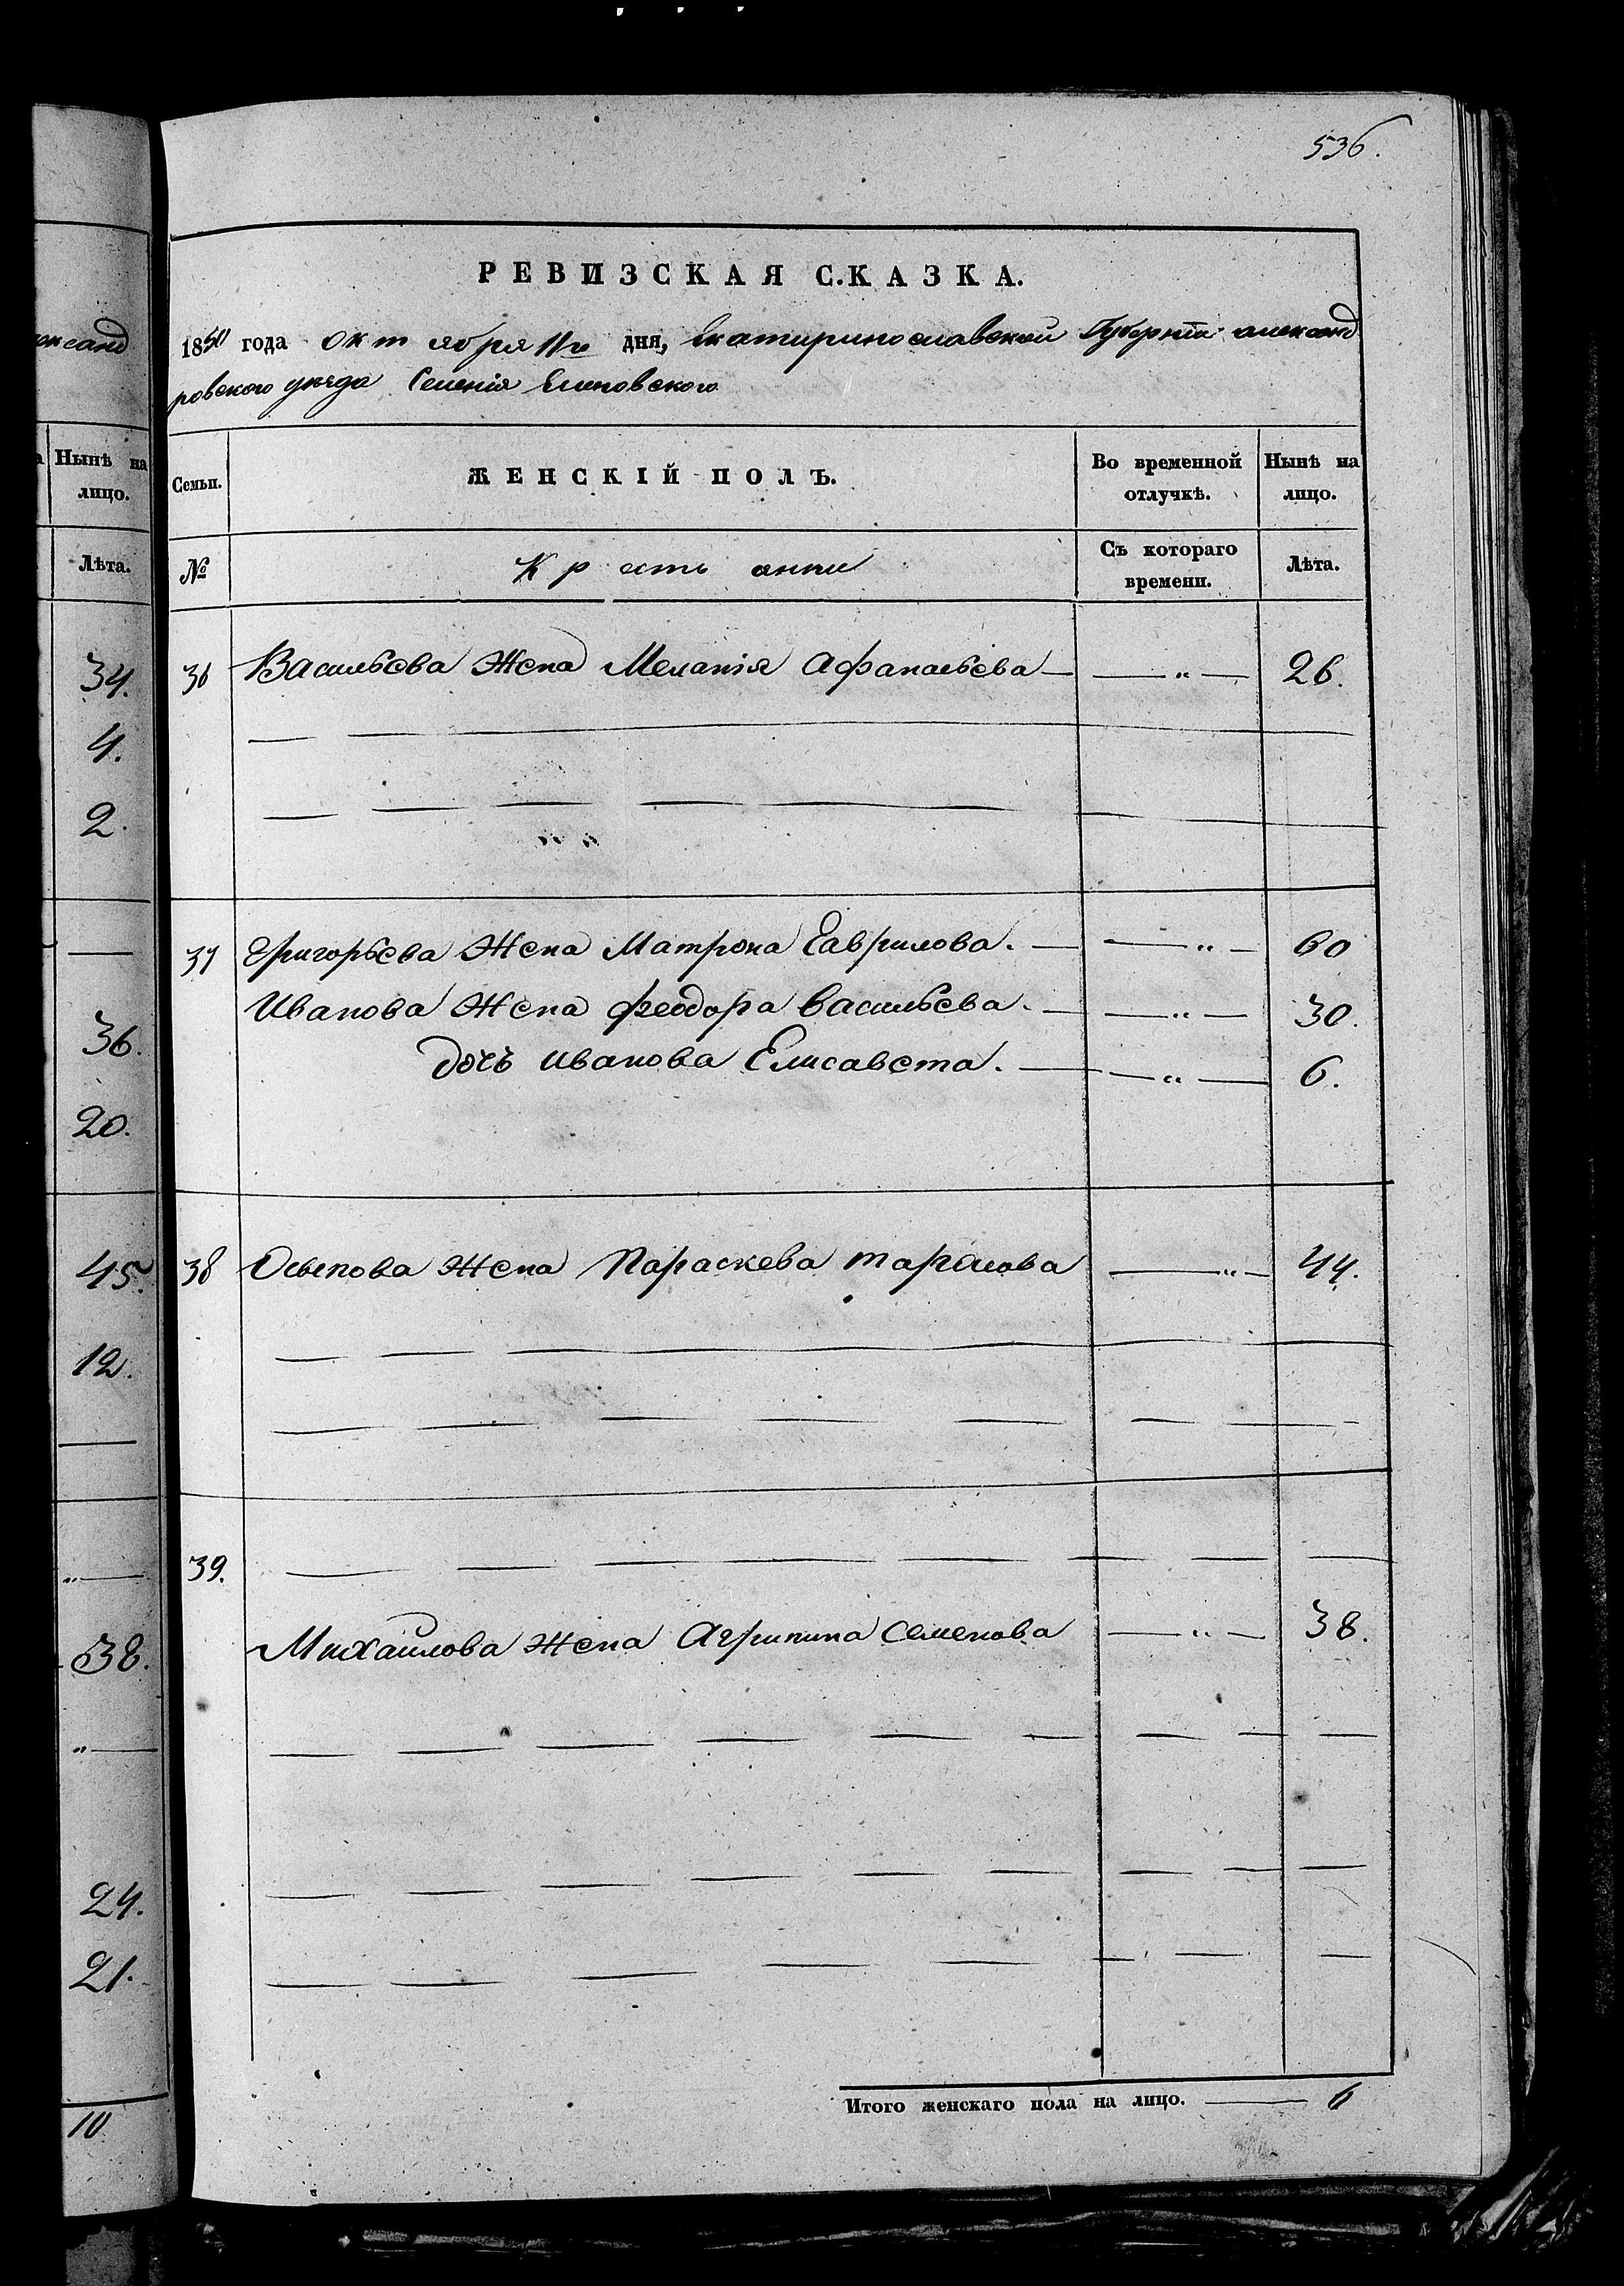 536.
РЕВИЗСКАЯ С.КАЗКА.
1850 года октяоря 11го дня, Екатеринославской Губерніи александ
ровского уезда Селенія Еленовского
ександ
Нынѣ на лицо.
Лѣта.
34.
4.
2.
36.
20.
45.
12.
38.
24.
21.
10
Семьи. ЖЕНСКІЙ ПОЛЪ. Во временной отлучкѣ. Нынѣ на лицо.
№ Крестьянки Съ котораго времени. Лѣта.
36 Васильева Жена Меланія Афанасьева — — „ — 26.
37 Григорьева Жена Матрона Гаврилова. — — „ — 60
Иванова Жена Феодора Васильева. — — „ — 30.
дочь Иванова Елисавета. — — „ — 6.
38 Осыпова Жена Параскева тарасова — „ — 44.
39.
Михайлова Жена Агрипина Семенова — „ — 38.
Итого женскаго пола на лицо. — 6